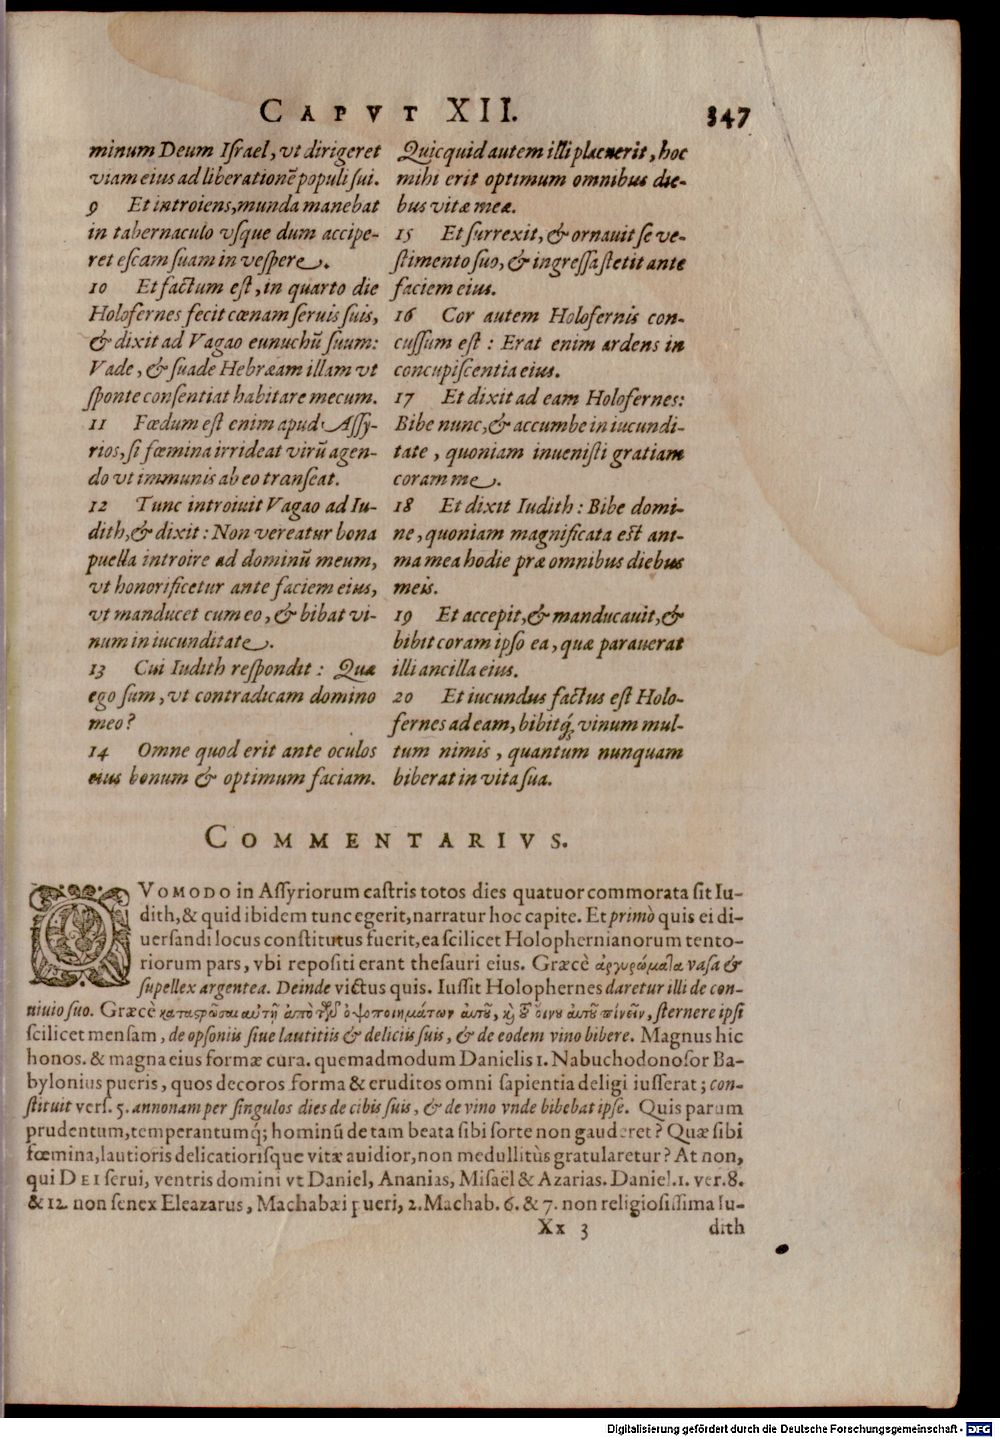 CAPVT XII. 347
minum Deum Iſrael, vt dirigeret
viam eius ad liberationē populi ſui.
9 Et introiens, munda manebat
in tabernaculo vſque dum accipe-
ret eſcam ſuam in veſpere.
10 Et factum eſt, in quarto die
Holofernes fecit cœnam ſeruis ſuis,
& dixit ad Vagao eunuchū ſuum:
Vade, & ſuade Hebræam illam vt
ſponte conſentiat habitare mecum.
11 Fœdum eſt enim apud Aſſy-
rios, ſi fœmina irrideat virū agen-
do vt immunis ab eo tranſeat.
12 Tunc introiuit Vagao ad Iu-
dith, & dixit: Non vereatur bona
puella introire ad dominū meum,
vt honorificetur ante faciem eius,
vt manducet cum eo, & bibat vi-
num in iucunditate.
13 Cui Iudith reſpondit: Quæ
ego ſum, vt contradicam domino
meo?
14 Omne quod erit ante oculos
eius bonum & optimum faciam.
Quicquid autem illi placuerit, hoc
mihi erit optimum omnibus die-
bus vitæ meæ.
15 Et ſurrexit, & ornauit ſe ve-
ſtimento ſuo, & ingreſſa ſtetit ante
faciem eius.
16 Cor autem Holofernis con-
cuſſum eſt: Erat enim ardens in
concupiſcentia eius.
17 Et dixit ad eam Holofernes:
Bibe nunc, & accumbe in iucundi-
tate, quoniam inueniſti gratiam
coram me.
18 Et dixit Iudith: Bibe domi-
ne, quoniam magnificata eſt ani-
ma mea hodie præ omnibus diebus
meis.
19 Et accepit, & manducauit, &
bibit coram ipſo ea, quæ parauerat
illi ancilla eius.
20 Et iucundus factus eſt Holo-
fernes ad eam, bibitq́; vinum mul-
tum nimis, quantum nunquam
biberat in vita ſua.
COMMENTARIVS.
QVOMODO in Aſſyriorum caſtris totos dies quatuor commorata ſit Iu-
dith, & quid ibidem tunc egerit, narratur hoc capite. Et primò quis ei di-
uerſandi locus conſtitutus fuerit, ea ſcilicet Holophernianorum tento-
riorum pars, vbi repoſiti erant theſauri eius. Græcè ἀργυρώματα vaſa &
ſupellex argentea. Deinde victus quis. Iuſſit Holophernes daretur illi de con-
niuio ſuo. Græcè καταστρῶσαι αὐτῇ ἀπὸ τῶν ὀψοποιημάτων αὐτοῦ, καὶ τοῦ οἴνου αὐτοῦ πίνειν, ſternere ipſi
ſcilicet menſam, de opſoniis ſiue lautitiis & deliciis ſuis, & de eodem vino bibere. Magnus hic
honos. & magna eius formæ cura. quemadmodum Danielis 1. Nabuchodonoſor Ba-
bylonius pueris, quos decoros forma & eruditos omni ſapientia deligi iuſſerat; con-
ſtituit verſ. 5. annonam per ſingulos dies de cibis ſuis, & de vino vnde bibebat ipſe. Quis parum
prudentum, temperantumq́; hominū de tam beata ſibi ſorte non gauderet? Quæ ſibi
fœmina, lautioris delicatioriſque vitæ auidior, non medullitùs gratularetur? At non,
qui DEI ſerui, ventris domini vt Daniel, Ananias, Miſaël & Azarias. Daniel. 1. ver. 8.
& 12. non ſenex Eleazarus, Machabæi pueri, 2. Machab. 6. & 7. non religioſiſſima Iu-
Xx 3 dith
Digitalisierung gefördert durch die Deutsche Forschungsgemeinschaft - DFG